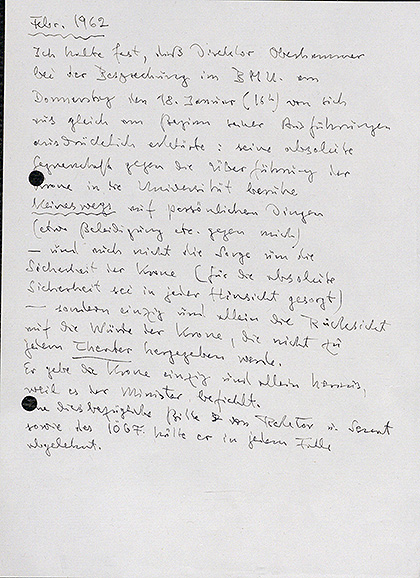 Febr. 1962
Ich halte fest, daß Direktor Oberhammer
bei der Besprechung im B.M.U. am
Donnerstag den 18. Januar (16h) von sich
aus gleich am Beginn seiner Ausführungen
ausdrücklich erklärte: seine absolute
Gegnerschaft gegen die Überführung der
Krone in die Universität beruhe
keineswegs auf persönlichen Dingen
(etwa Beleidigung etc. gegen mich)
— und auch nicht die Sorge um die
Sicherheit der Krone (für die absolute
Sicherheit sei in jeder Hinsicht gesorgt)
— sondern einzig und allein die Rücksicht
auf die Würde der Krone, die nicht zu
jedem Theater hergegeben werde.
Er gebe die Krone einzig und allein heraus,
weil es der Minister befiehlt.
diesbezügliche Bitte von Rektor u. Senat
sowie des hätte er in jedem Falle
abgelehnt.